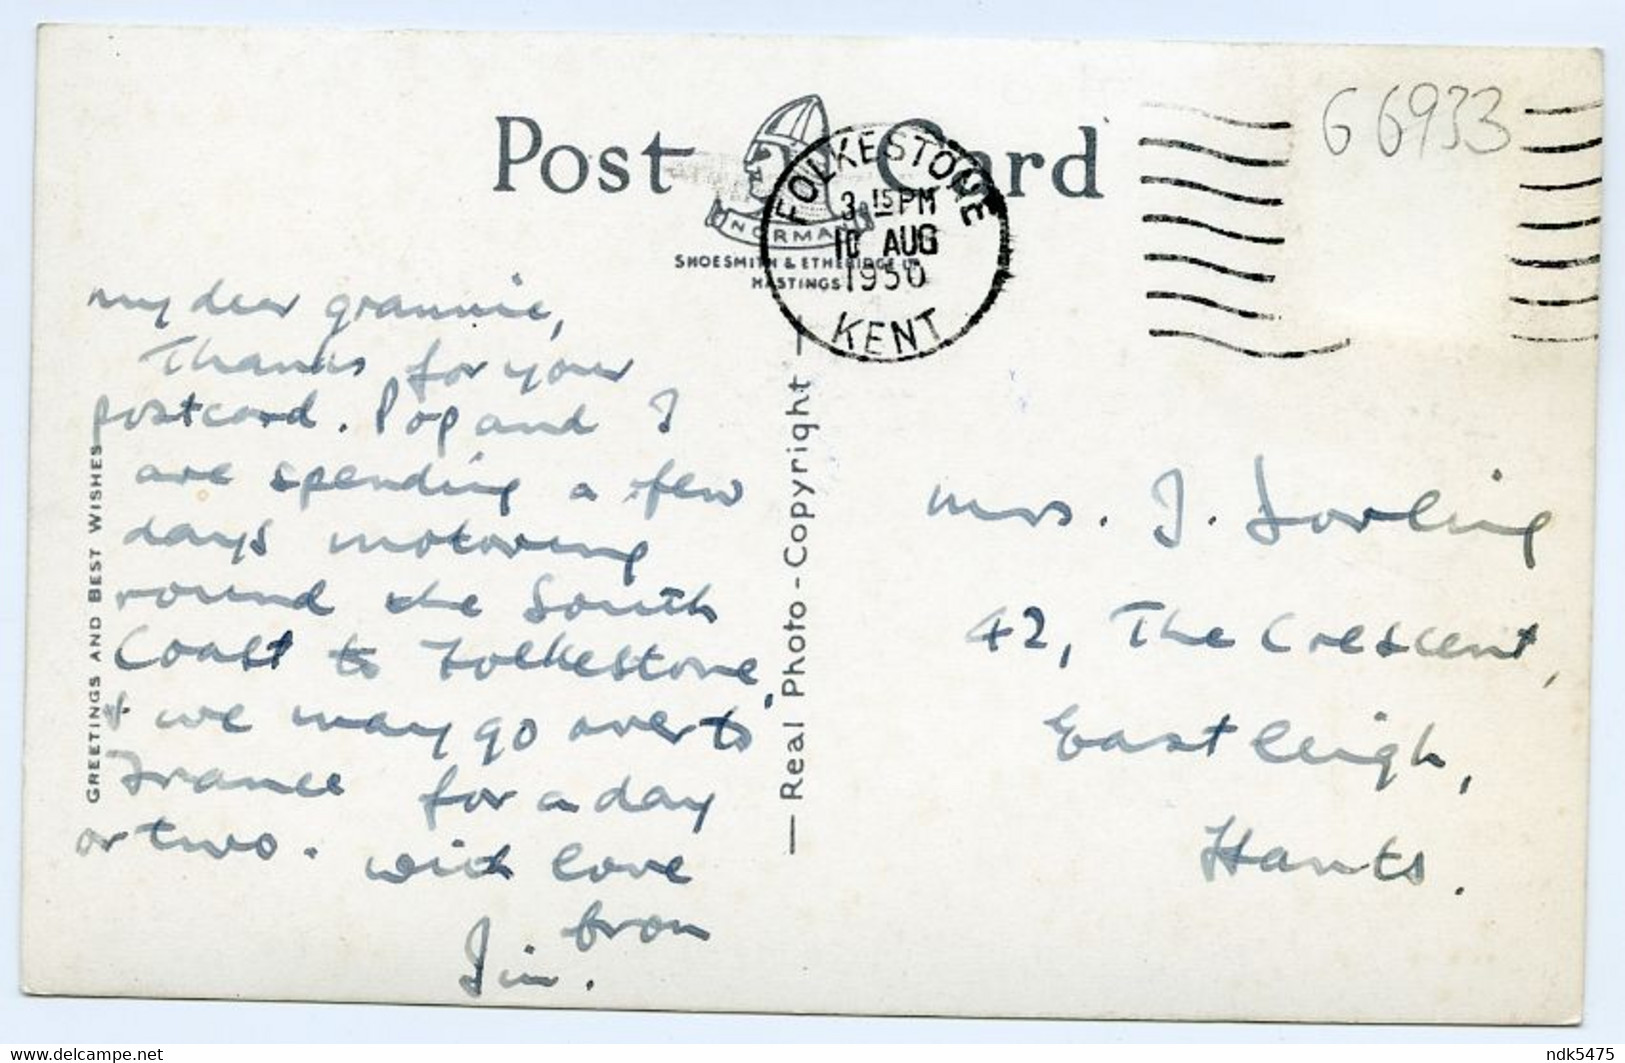 Post Card
NORMAN
SHOESMITH & ETHERIDGE LTD
HASTINGS
FOLKESTONE
3 15 PM
10 AUG
1950
KENT
66933
GREETINGS AND BEST WISHES
— Real Photo - Copyright —
My dear grannie,
Thanks for your
postcard. Pop and I
are spending a few
days motoring
round the South
Coast to Folkestone,
& we may go over to
France for a day
or two. With love
from
Jim.
Mrs. J. Dorling
42, The Crescent,
Eastleigh,
Hants.
www.delcampe.net
ndk5475